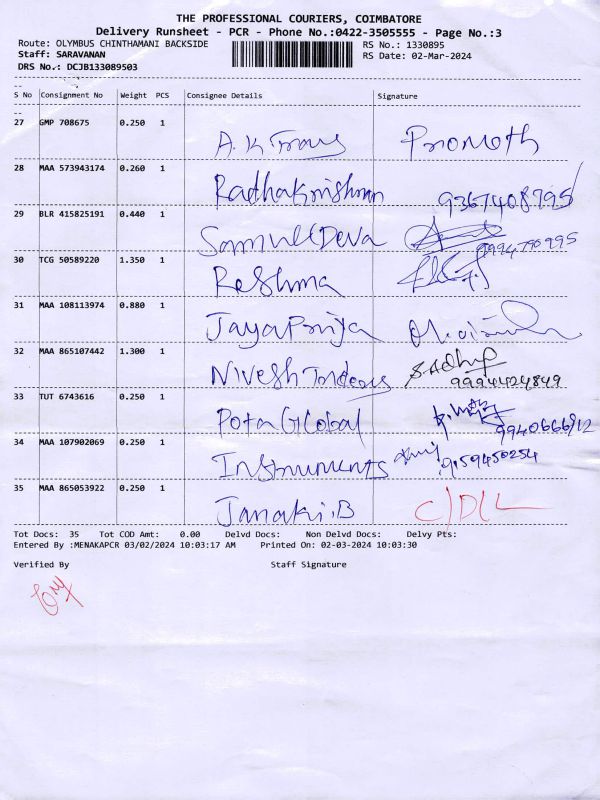 THE PROFESSIONAL COURIERS, COIMBATORE
Delivery Runsheet - PCR - Phone No.:0422-3505555 - Page No.:3
Route: OLYMBUS CHINTHAMANI BACKSIDE
RS No.: 1330895
Staff: SARAVANAN
RS Date: 02-Mar-2024
DRS No.: DCJB133089503
S No Consignment No Weight PCS Consignee Details Signature
27 GMP 708675 0.250 1 A.K Trans Promoth
28 MAA 573943174 0.260 1 Radhakrishnan 9367408795
29 BLR 415825191 0.440 1 Samuel Deva 9994770995
30 TCG 50589220 1.350 1 Reshma
31 MAA 108113974 0.880 1 JayaPriya
32 MAA 865107442 1.300 1 Nivesh Traders Sadhip
9994424849
33 TUT 6743616 0.250 1 Pota Global
9940666912
34 MAA 107902069 0.250 1 Instruments 9159450254
35 MAA 865053922 0.250 1 Janaki.B C/D/L
Tot Docs: 35 Tot COD Amt: 0.00 Delvd Docs: Non Delvd Docs: Delvy Pts:
Entered By :MENAKAPCR 03/02/2024 10:03:17 AM Printed On: 02-03-2024 10:03:30
Verified By Staff Signature